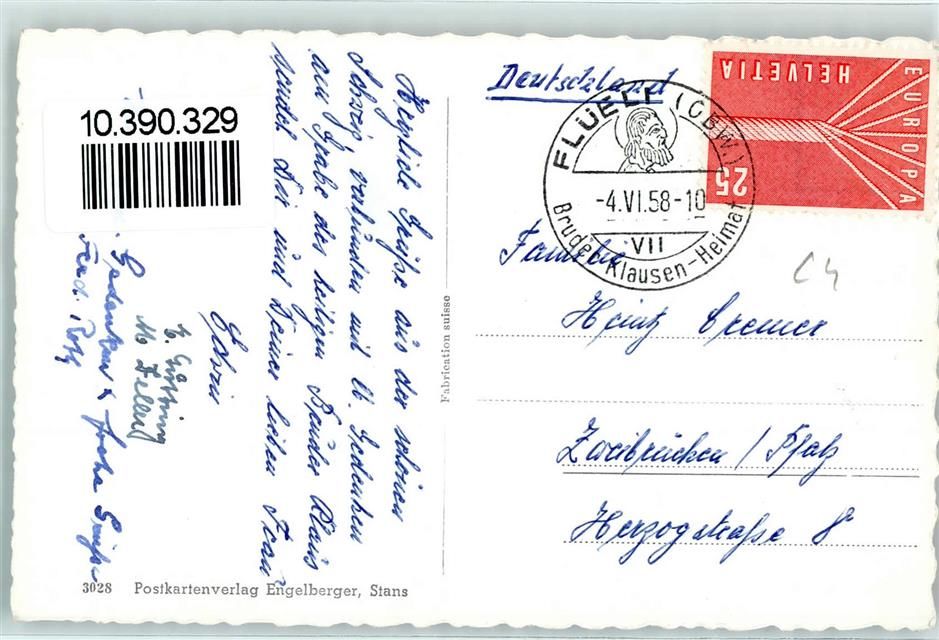 10.390.329
Herzliche Grüße aus der schönen
Schweiz, verbunden mit lb. Gedenken
am Grabe des heiligen Bruder Klaus
sendet Dir und Deiner lieben Frau
Edwin
Gedenken & frohe Grüße
Ferd.
3028 Postkartenverlag Engelberger, Stans
Fabrication suisse
Deutschland
HELVETIA
EUROPA
25
FLÜELI (OBW.)
-4.VI.58-10
VII
Bruder-Klausen-Heimat
Familie
Heinz Cremer
Zweibrücken / Pfalz
Herzogstraße 8
C4